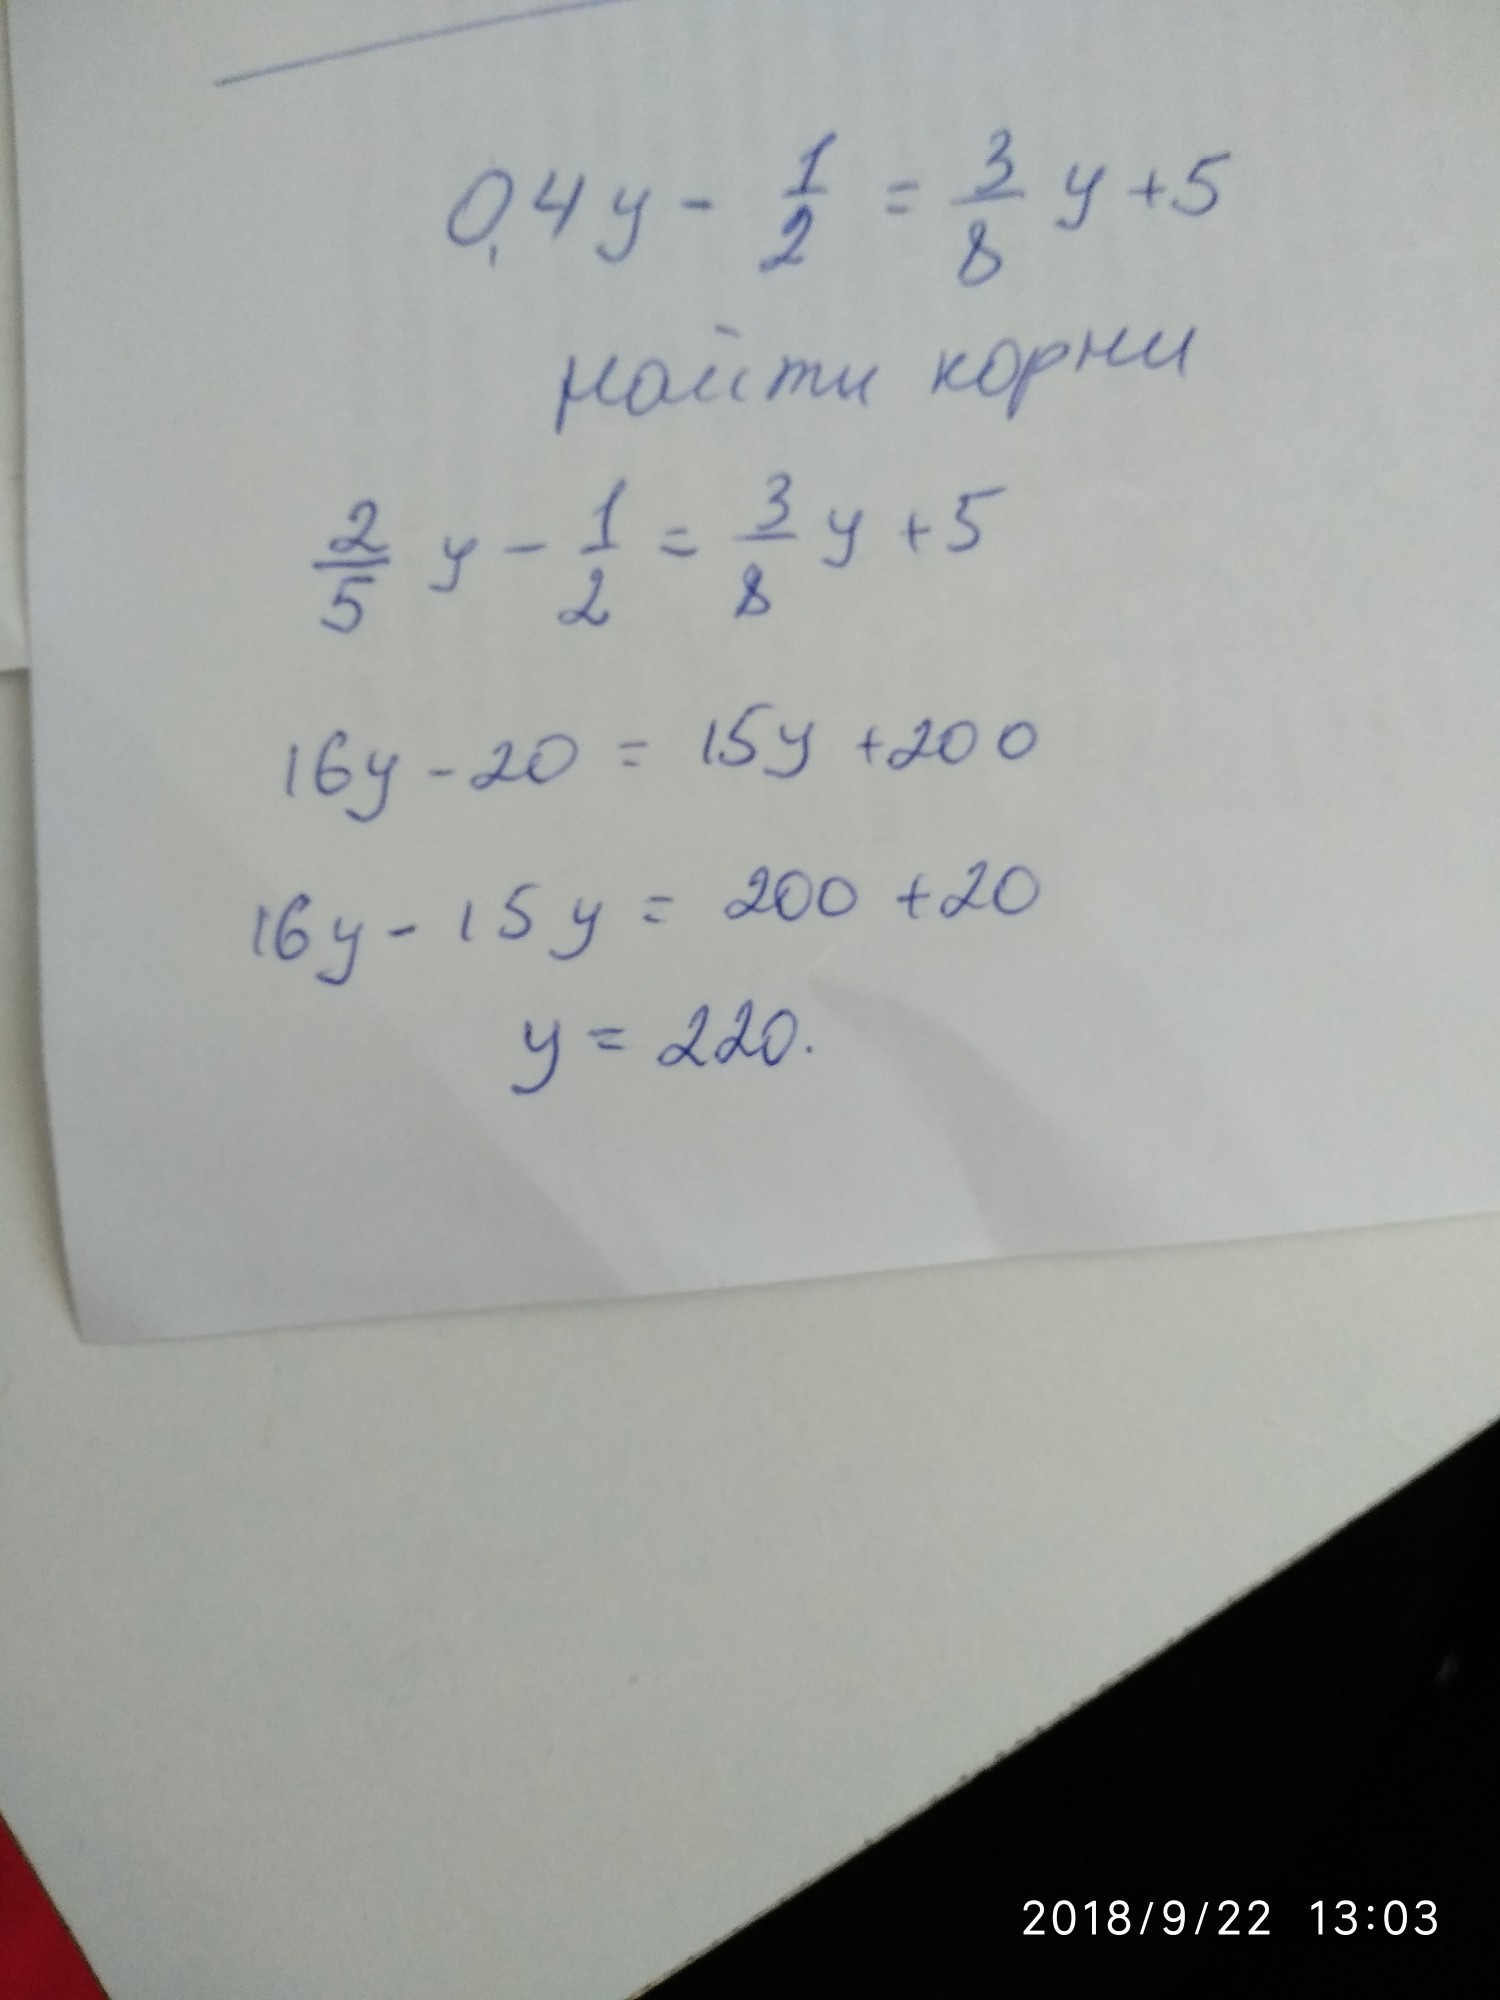 0,4y - 1/2 = 3/8 y + 5
найти корни
2/5 y - 1/2 = 3/8 y + 5
16y - 20 = 15y + 200
16y - 15y = 200 + 20
y = 220.
2018/9/22 13:03